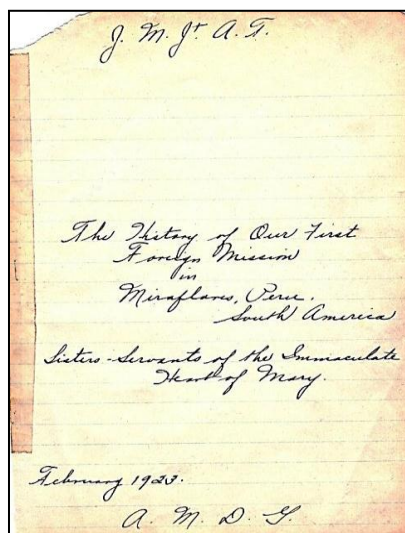 J. M. J. A. T.
The History of Our First
Foreign Mission
in
Miraflores, Peru,
South America
Sisters-Servants of the Immaculate
Heart of Mary.
February 1923.
A. M. D. G.